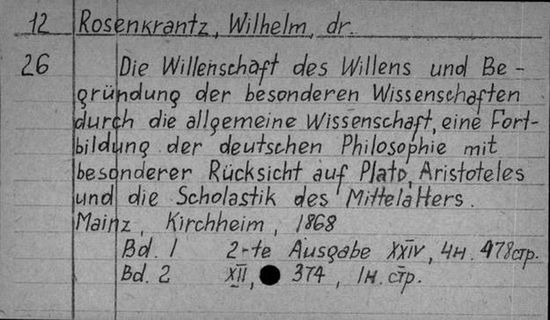 12 Rosenkrantz, Wilhelm, dr.
26 Die Willenschaft des Willens und Be-
gründung der besonderen Wissenschaften
durch die allgemeine Wissenschaft, eine Fort-
bildung der deutschen Philosophie mit
besonderer Rücksicht auf Plato, Aristoteles
und die Scholastik des Mittelalters.
Mainz, Kirchheim, 1868
Bd. 1 2-te Ausgabe XXIV, 4н. 478стр.
Bd. 2 XII, 374, 1н. стр.